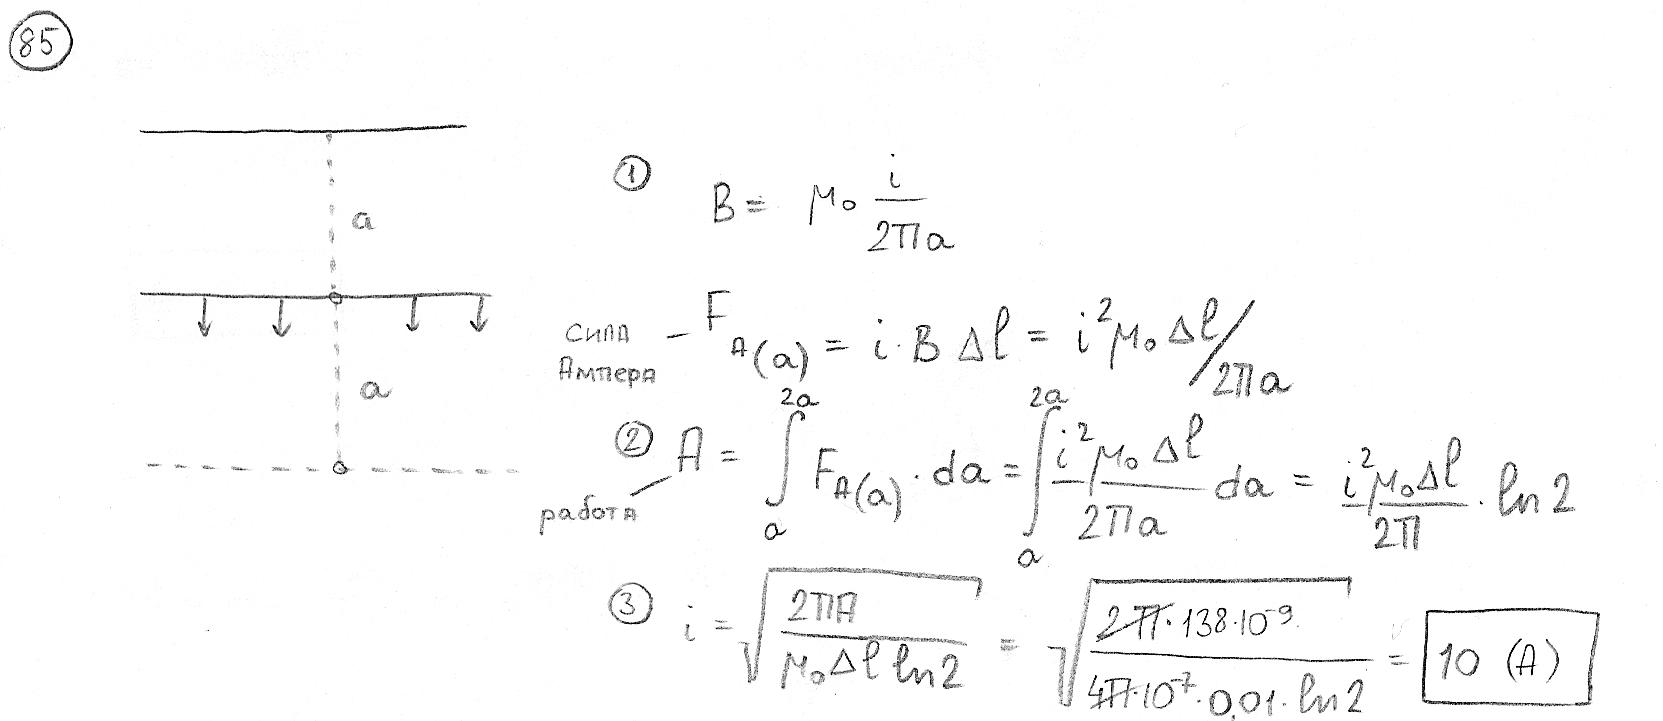 85
a
a
① B = μ₀ i / 2πa
сила Ампера – F_A(a) = i · B Δl = i²μ₀Δl / 2πa
② A = ∫_a^{2a} F_A(a) · da = ∫_a^{2a} i²μ₀Δl / 2πa da = i²μ₀Δl / 2π · ln 2
работа
③ i = √(2πA / μ₀Δl ln 2) = √(2π · 138 · 10⁻⁹ / 4π · 10⁻⁷ · 0,01 · ln 2) = 10 (A)